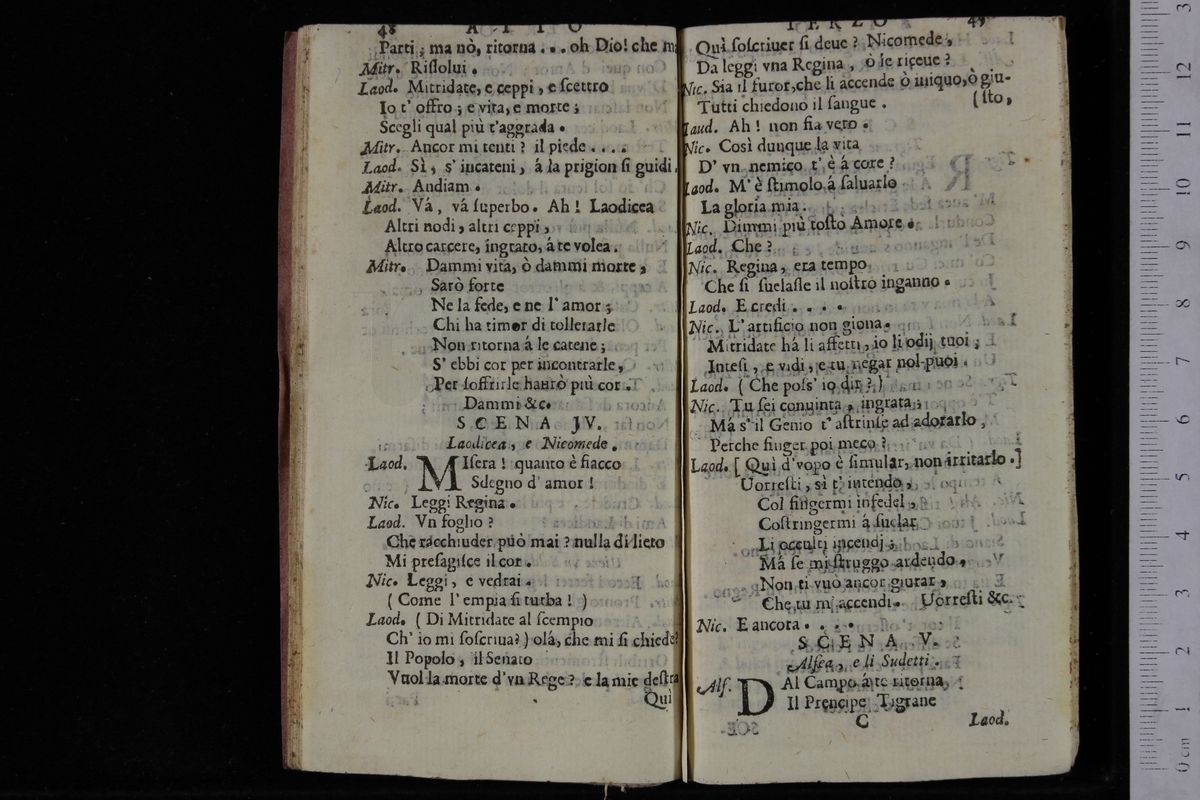 48 ATTO
Parti; ma nò, ritorna... oh Dio! che m
Mitr. Rissolui.
Laod. Mitridate, e ceppi, e scettro
Io t' offro; e vita, e morte;
Scegli qual più t'aggrada.
Mitr. Ancor mi tenti? il piede....
Laod. Sì, s' incateni, á la prigion si guidi.
Mitr. Andiam.
Laod. Vá, vá superbo. Ah! Laodicea
Altri nodi, altri ceppi,
Altro carcere, ingrato, á te volea.
Mitr. Dammi vita, ò dammi morte,
Sarò forte
Ne la fede, e ne l' amor;
Chi ha timor di tollerarle
Non ritorna á le catene;
S' ebbi cor per incontrarle,
Per soffrirle haurò più cor.
Dammi &c.
SCENA JV.
Laodicea, e Nicomede.
Laod. MIsera! quanto è fiacco
Sdegno d' amor!
Nic. Leggi Regina.
Laod. Vn foglio?
Che racchiuder può mai? nulla di lieto
Mi presagisce il cor.
Nic. Leggi, e vedrai.
(Come l' empia si turba!)
Laod. (Di Mitridate al scempio
Ch' io mi soscriua?) olá, che mi si chiede?
Il Popolo, il Senato
Vuol la morte d'vn Rege? e la mie destra
Quì
TERZO 49
Quì soscriuer si deue? Nicomede,
Da leggi vna Regina, ò le riceue?
Nic. Sia il furor, che li accende ò iniquo, ò giu-
Tutti chiedono il sangue. (sto,
Laud. Ah! non fia vero.
Nic. Così dunque la vita
D' vn nemico t' è á core?
Laod. M' è stimolo á saluarlo
La gloria mia.
Nic. Dimmi più tosto Amore.
Laod. Che?
Nic. Regina, era tempo
Che si suelasse il nostro inganno.
Laod. E credi....
Nic. L' artificio non gioua.
Mitridate há li affetti, io li odij tuoi;
Intesi, e vidi, e tu negar nol puoi.
Laod. (Che poss' io dir?)
Nic. Tu sei conuinta, ingrata;
Má s' il Genio t' astrinse ad adorarlo,
Perche finger poi meco?
Laod. [Quì d'vopo è simular, non irritarlo.]
Uorresti, sì t' intendo,
Col fingermi infedel,
Costringermi á suelar
Li occulti incendj;
Má se mi struggo ardendo,
Non ti vuò ancor giurar,
Che tu m' accendi. Uorresti &c.
Nic. E ancora....
SCENA V.
Alsea, e li Sudetti.
Als. DAl Campo á te ritorna
Il Prencipe Tigrane
C Laod.